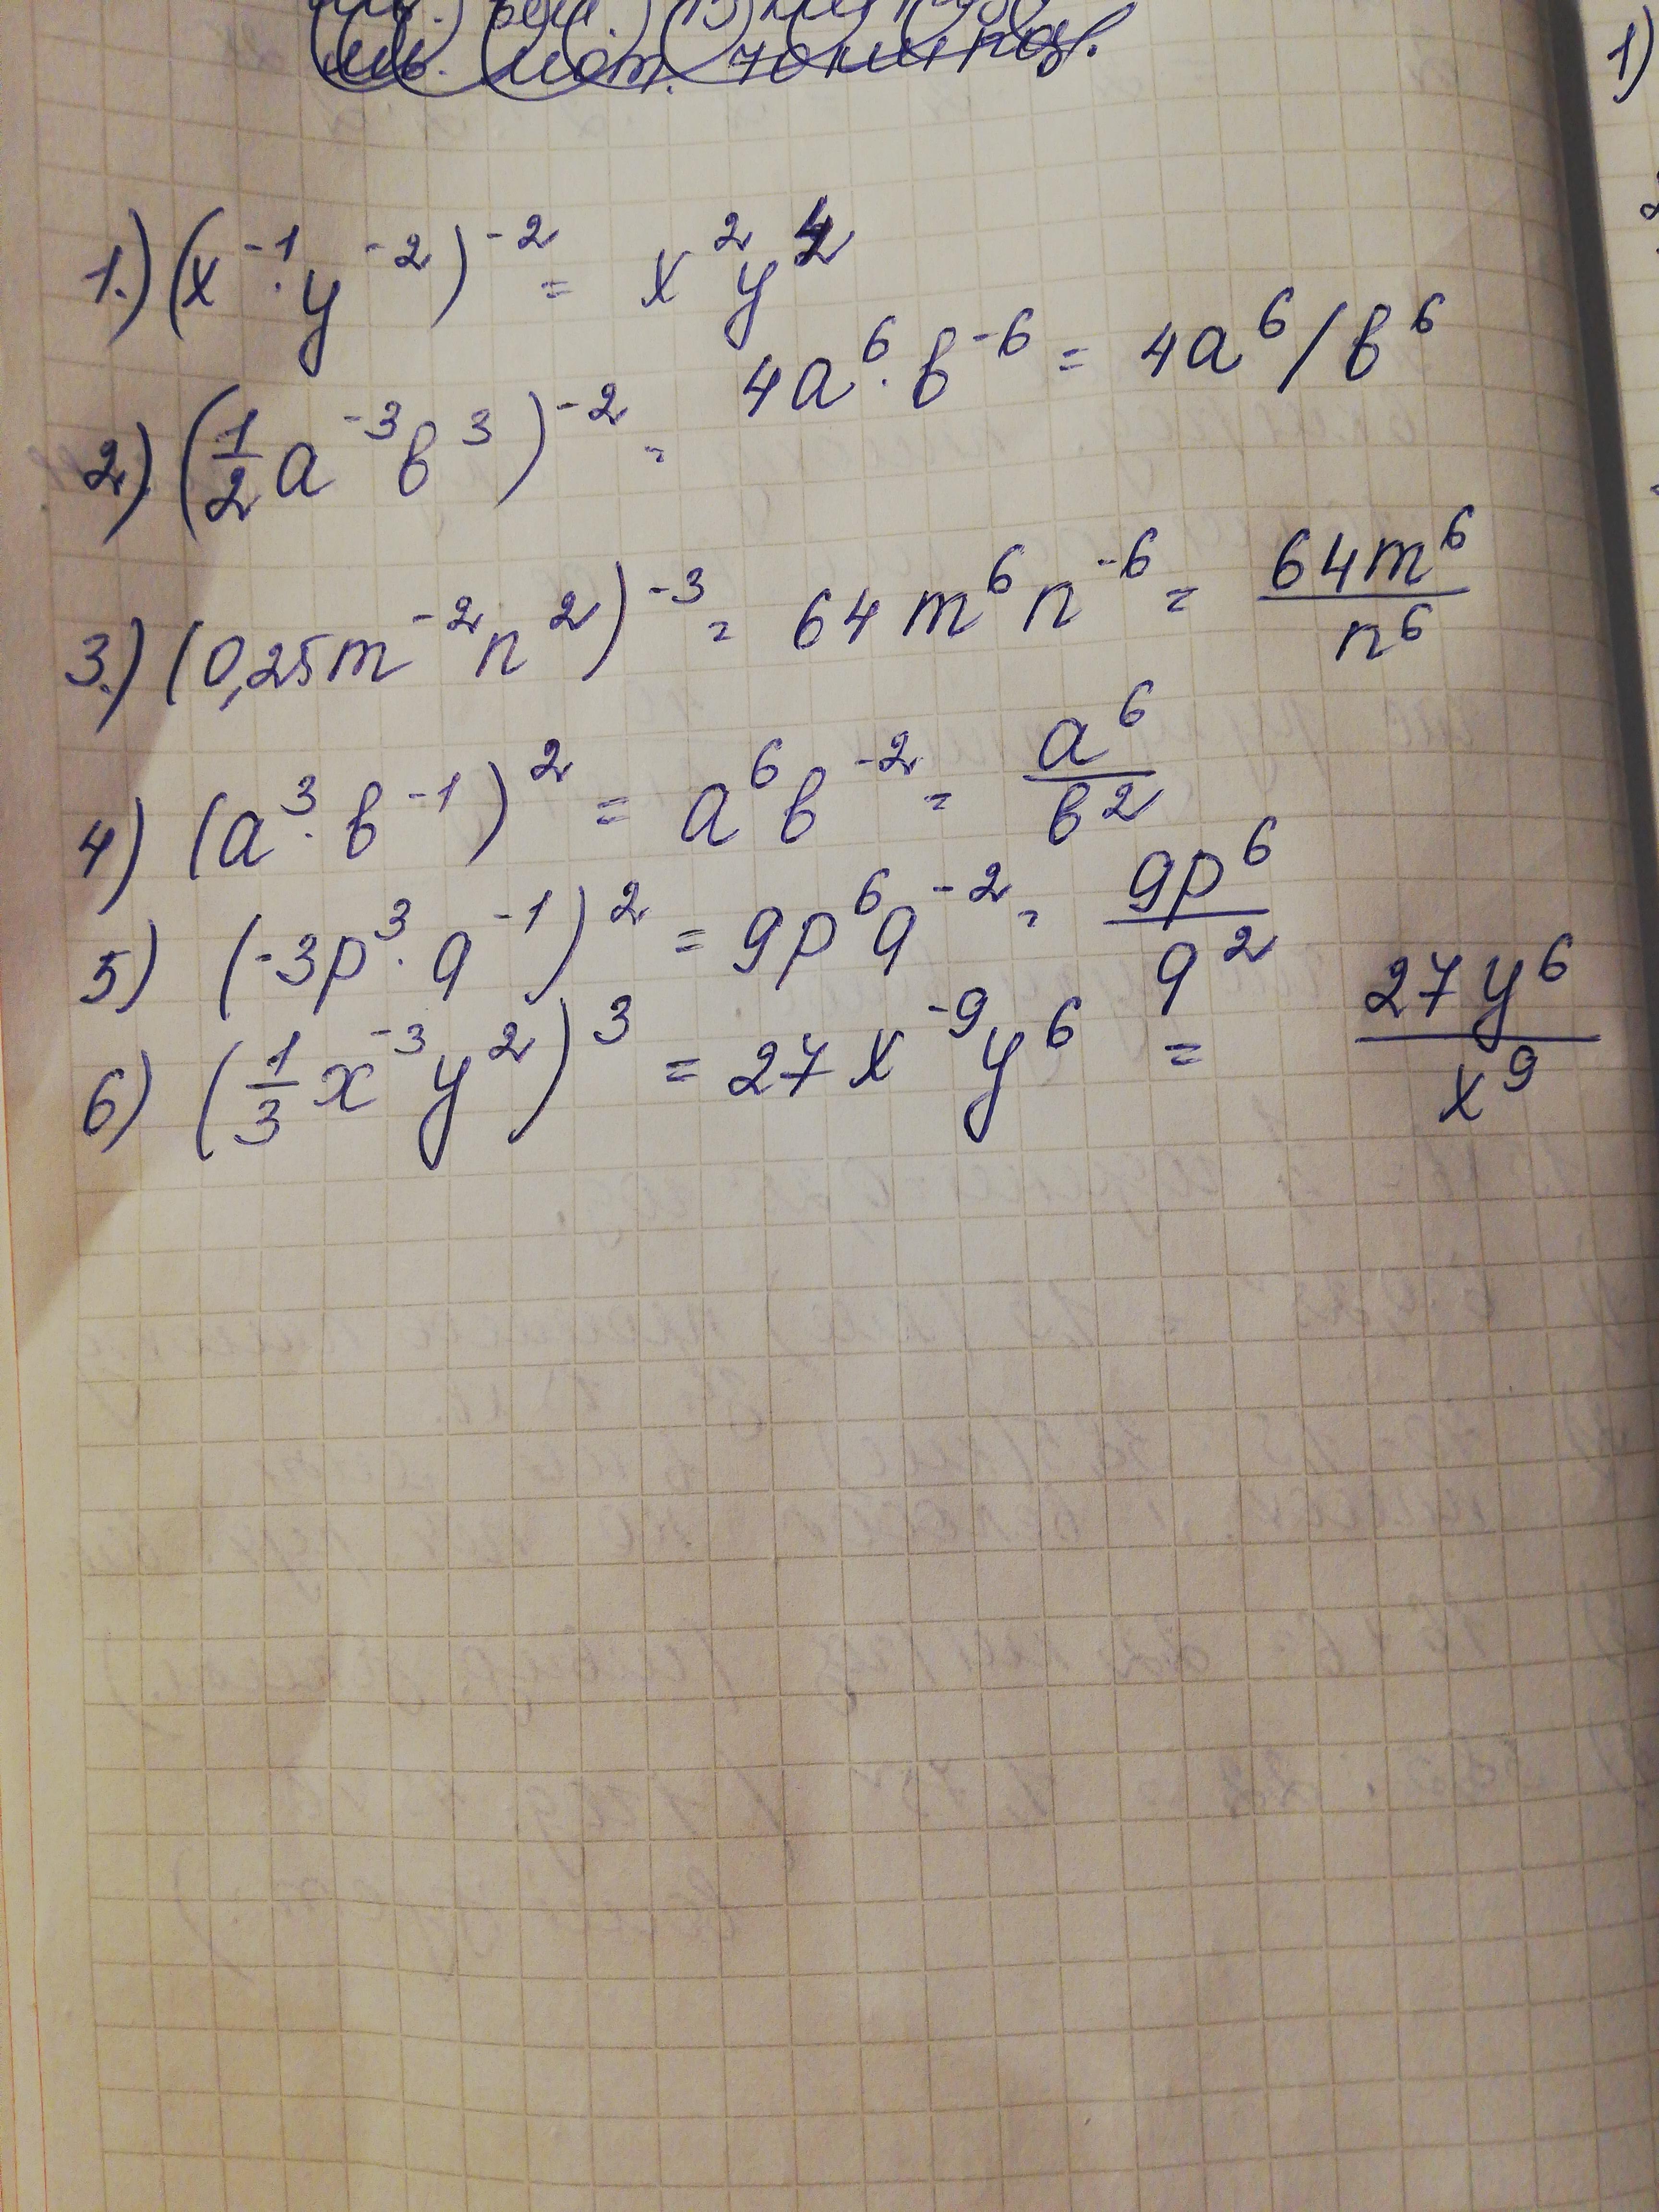 1.) (x⁻¹·y⁻²)⁻² = x²y⁴
2) (1/2 a⁻³b³)⁻² = 4a⁶·b⁻⁶ = 4a⁶/b⁶
3.) (0,25m⁻²n²)⁻³ = 64m⁶n⁻⁶ = 64m⁶/n⁶
4) (a³·b⁻¹)² = a⁶b⁻² = a⁶/b²
5) (-3p³·q⁻¹)² = 9p⁶q⁻² = 9p⁶/q²
6) (1/3 x⁻³y²)³ = 27x⁻⁹y⁶ = 27y⁶/x⁹
1)